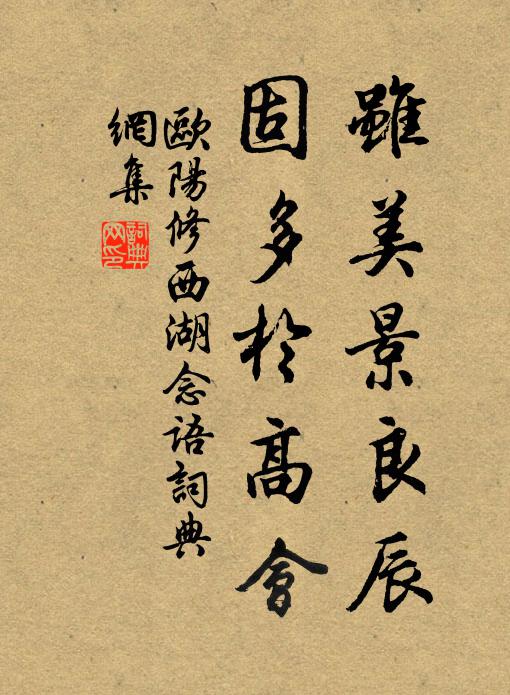 雖美景良辰
固多於高會
歐陽修西湖念語詞典
網集
詞典
网印